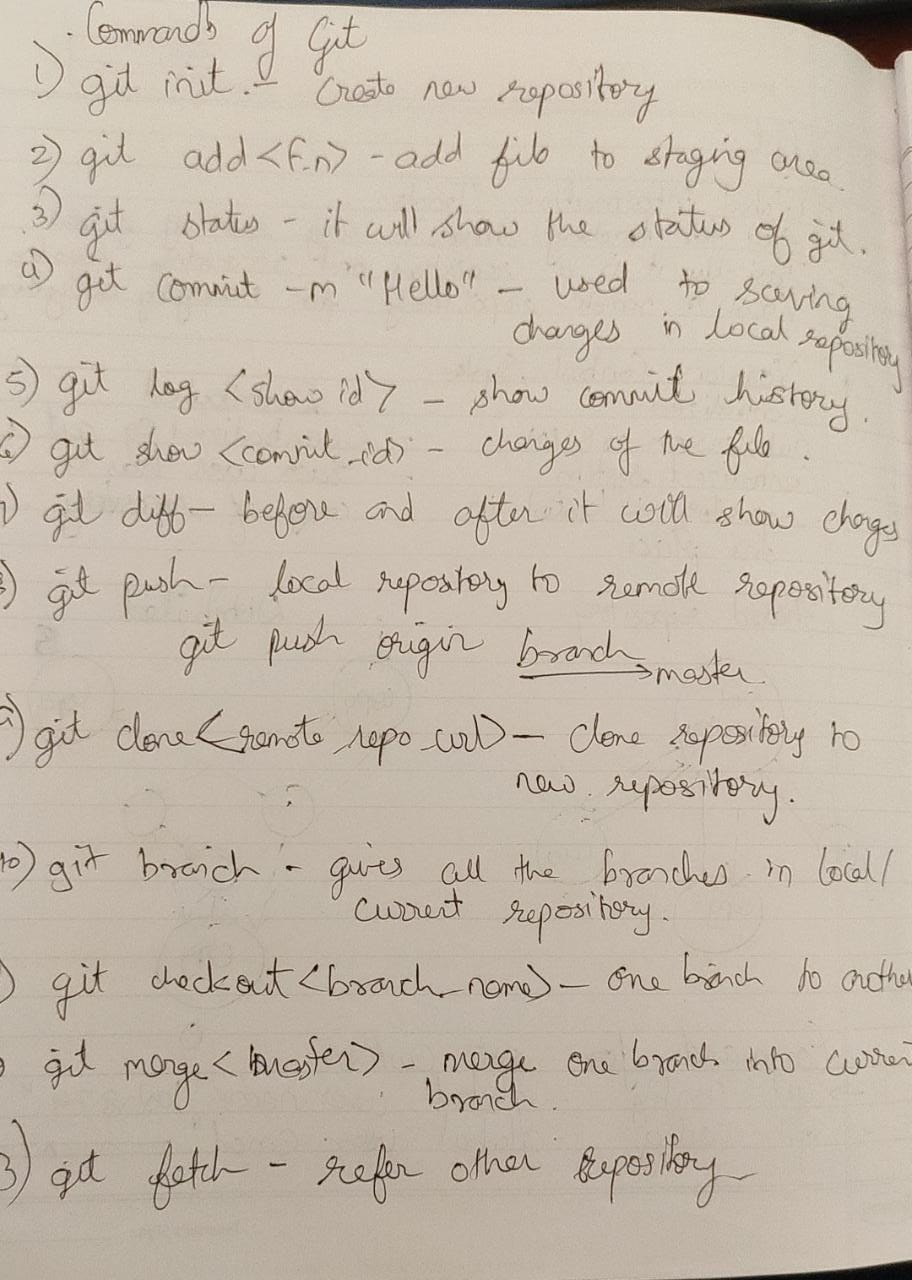 . Commands of Git
1) git init. - Create new repository
2) git add <f.n> - add file to staging area.
3) git status - it will show the status of git.
4) git commit -m "Hello" - used to saving
changes in local repository
5) git log <show id> - show commit history.
6) git show <commit_id> - changes of the file.
7) git diff - before and after it will show changes
8) git push - local repository to remote repository
git push origin branch
→ master
9) git clone <remote repo url> - clone repository to
new repository.
10) git branch - gives all the branches in local/
current repository.
) git checkout <branch name> - one branch to another
git merge <master> - merge one branch into current
branch.
3) git fetch - refer other repository